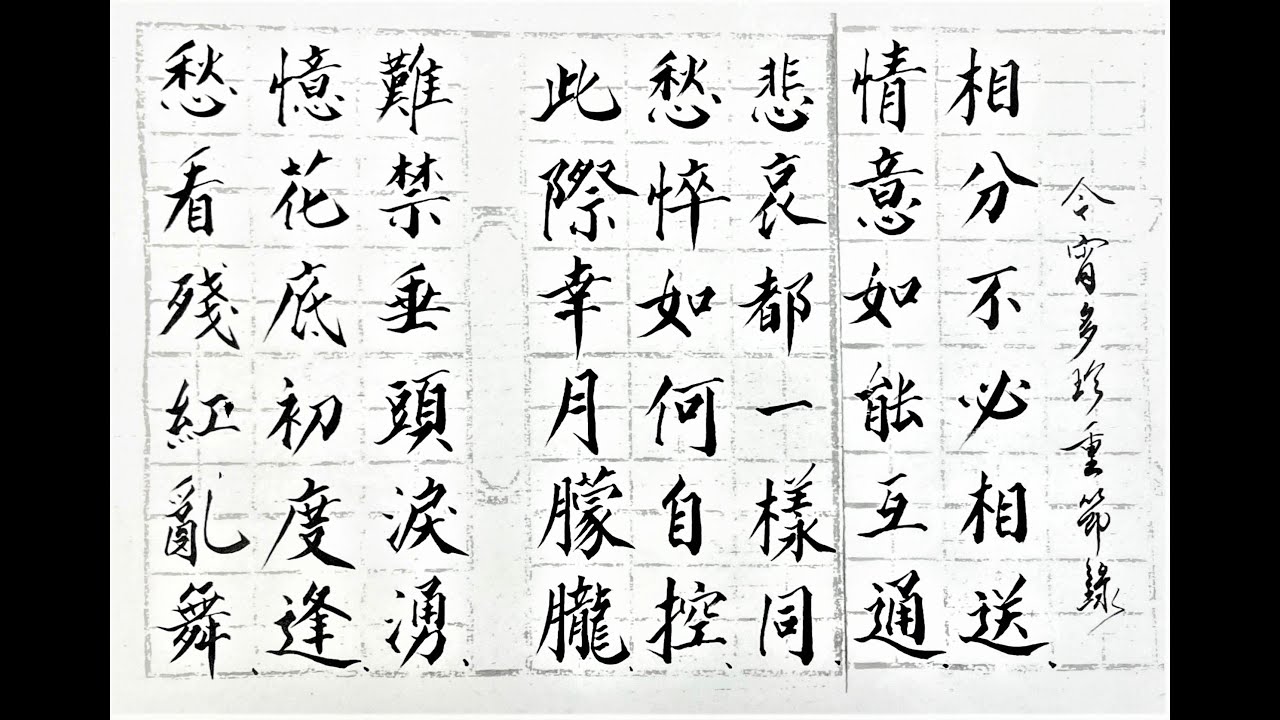 愁看殘紅亂舞、
憶花底初度逢、
難禁垂頭淚湧、
此際幸月朦朧、
愁悴如何自控、
悲哀都一樣同、
情意如能互通、
相分不必相送、
今宵多珍重節錄